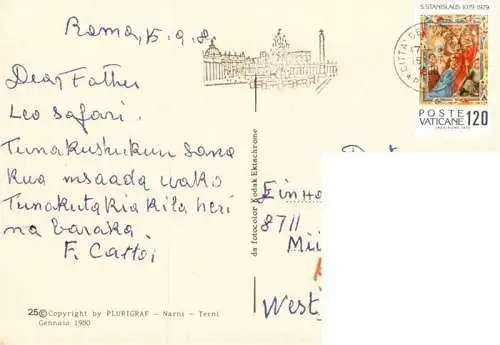 Roma, 15.9.80
Dear Father
Leo safari.
Tunakushukun sana
kua msaada wako
Tunakutakia kila heri
na baraka
F. Cattoi
25 © Copyright by PLURIGRAF - Narni - Terni
Gennaio 1980
da fotocolor Kodak Ektachrome
S. STANISLAUS 1079-1979
POSTE
VATICANE 120
CITTA' DE
Einho
8711
Mü
West